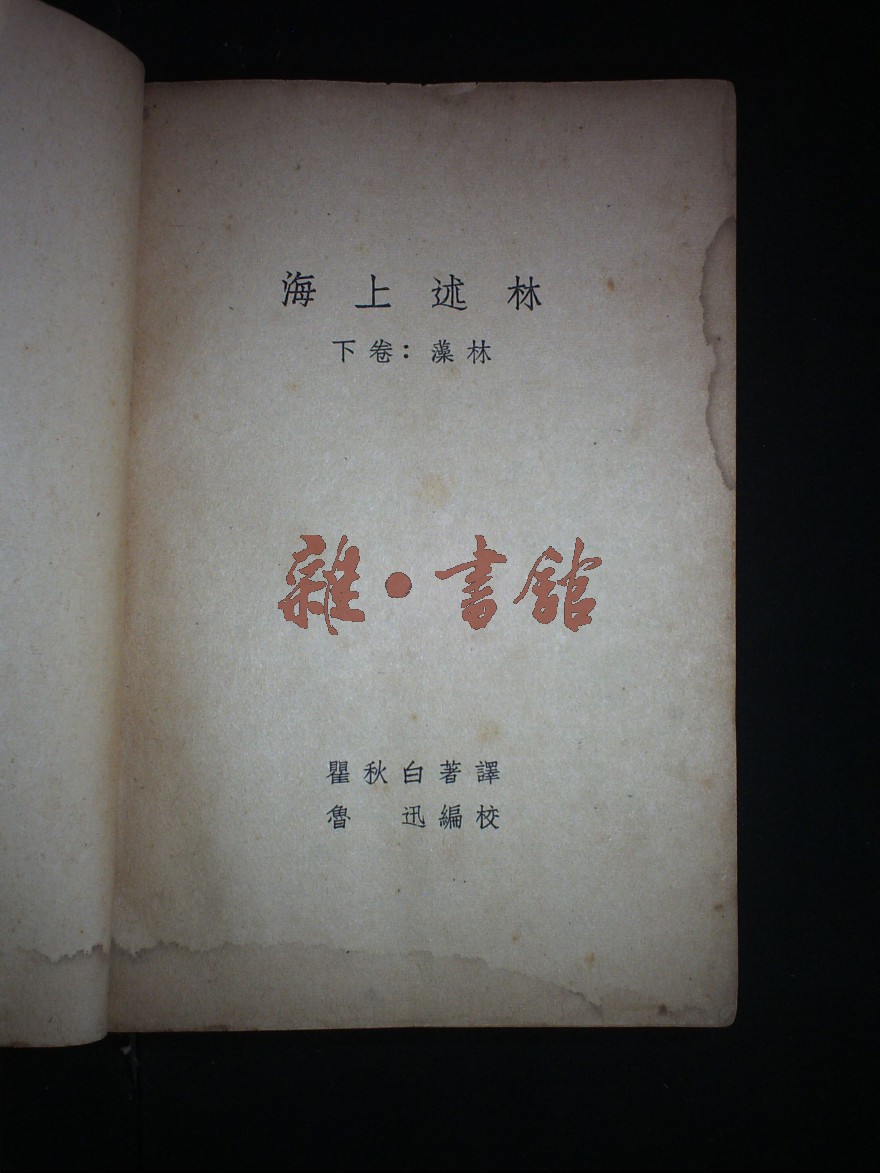 海上述林
下卷：藻林
雜·書館
瞿秋白著譯
魯 迅編校